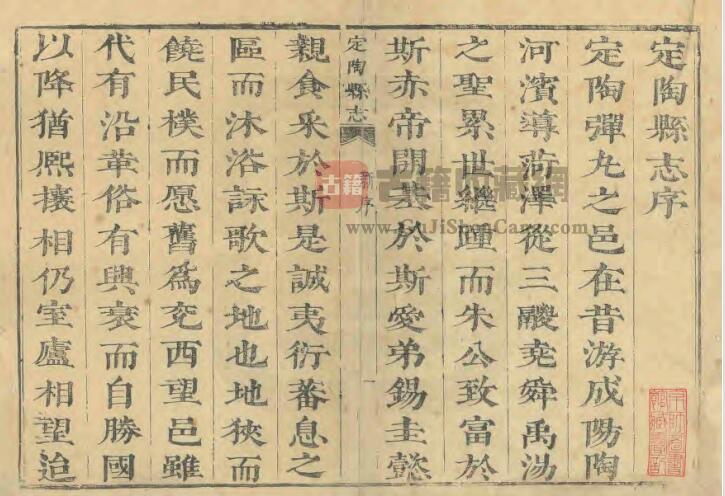 定陶縣志序
定陶彈丸之邑在昔游成陽陶
河濱導菏澤從三鬷堯舜禹湯
之聖累世繼踵而朱公致富於
斯赤帝開基於斯愛弟錫圭懿
定陶縣志 序 一
親食采於斯是誠夷衍蕃息之
區而沐浴詠歌之地也地狹而
饒民樸而愿舊為兗西望邑雖
代有沿革俗有興衰而自勝國
以降猶熙攘相仍室廬相望迨
古籍
古籍收藏網
www.GuJiShouCang.com